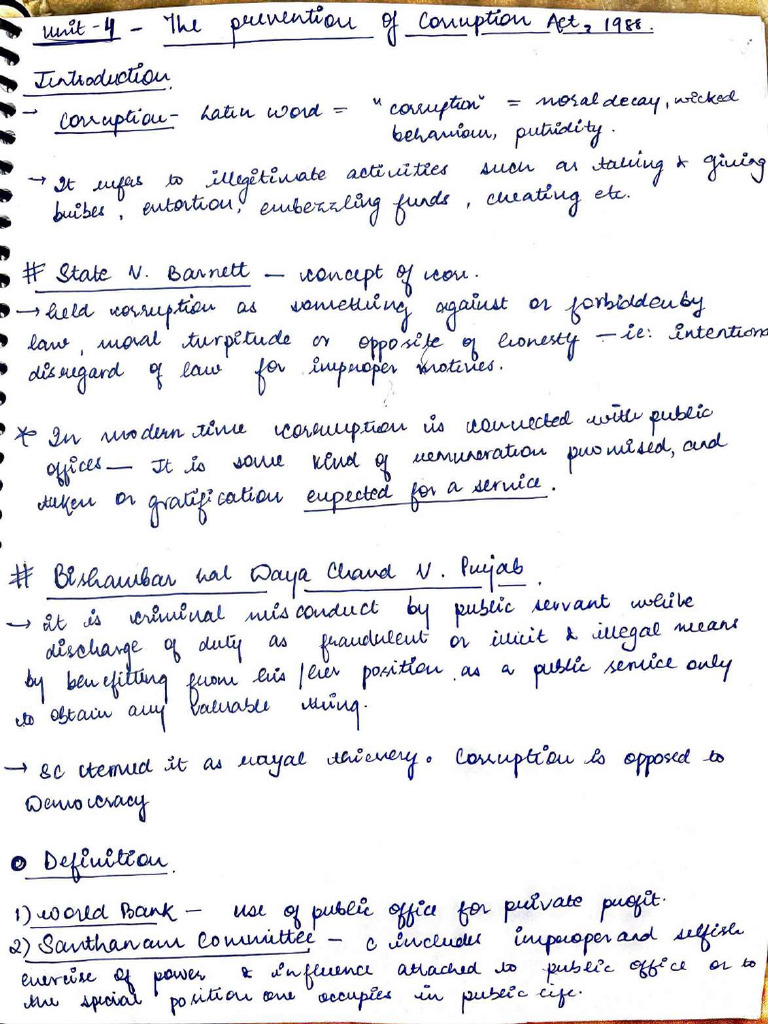 Unit-4 - The prevention of Corruption Act, 1988.
Introduction
→ Corruption - Latin word = "corruption" = moral decay, wicked
behaviour, putridity.
→ It refers to illegitimate activities such as taking & giving
bribes, extortion, embezzling funds, cheating etc.
# State V. Barnett - concept of corr.
→ held corruption as something against or forbidden by
law, moral turpitude or opposite of honesty - ie: intentional
disregard of law for improper motives.
* In modern time corruption is connected with public
offices - It is some kind of remuneration promised, and
taken or gratification expected for a service.
# Bishambar Lal Daya Chand V. Punjab.
→ it is criminal misconduct by public servant while
discharge of duty as fraudulent or illicit & illegal means
by benefitting from his/her position as a public service only
to obtain any valuable thing.
→ SC termed it as royal thievery. Corruption is opposed to
Democracy
● Definition
1) World Bank - use of public office for private profit.
2) Santhanam Committee - c includes improper and selfish
exercise of power & influence attached to public office or to
the special position one occupies in public life.